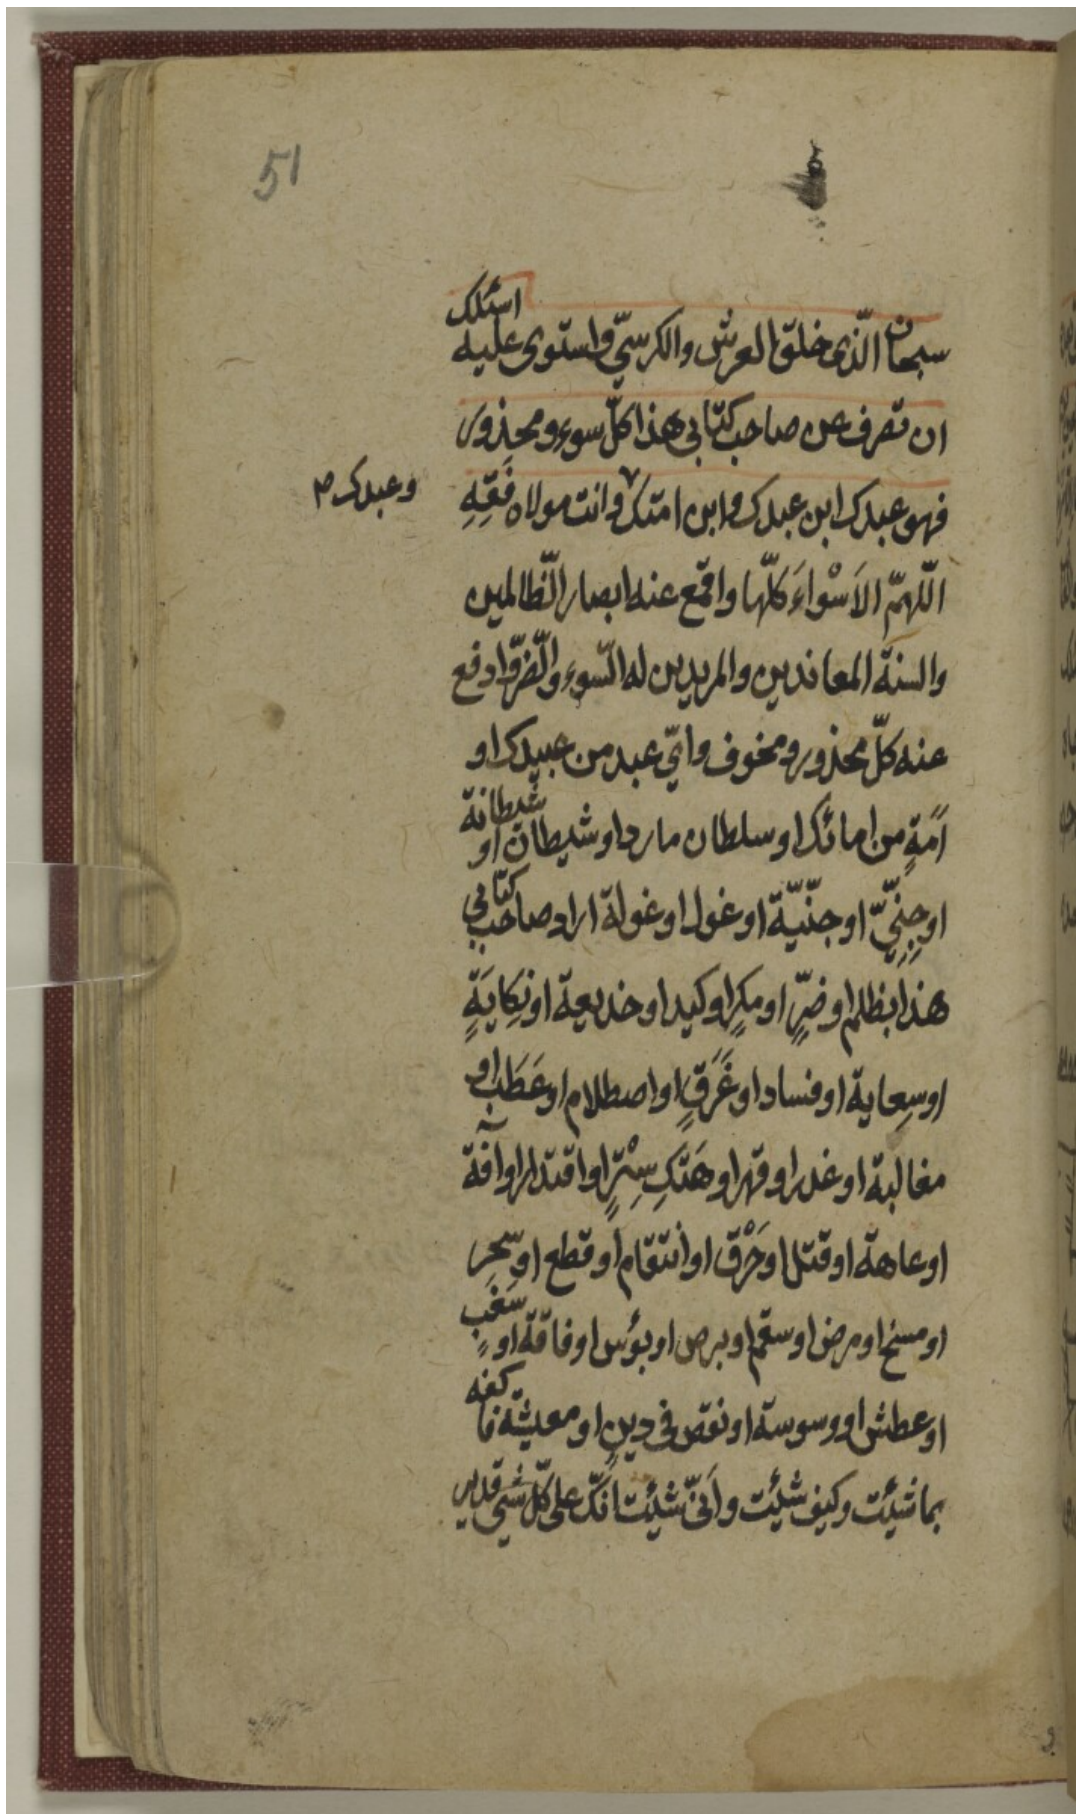 51
سبحان الّذى خلق العرش والكرسيّ واستوى عليه اسئلك
ان تصرف عن صاحب كتابى هذا كلّ سوء ومحذور
فهو عبدك ابن عبدك وابن امتك وانت مولاه فَقِهِ
وعبدك
اللّهمّ الاَسْواءَ كلّها واقمع عنه ابصار الظّالمين
والسنة المعاندين والمريدين له السّوء والضّرّ وادفع
عنه كلّ محذور ومخوف وايّ عبد من عبيدك او
اَمَةٍ من امائك او سلطان مارد او شيطان او شيطانة
او جِنِّيّ او جنّيّة او غول او غولة اراد صاحب كتابي
هذا بظلم او ضرٍّ او مكرٍ او كيد او خديعة او نِكايَةٍ
او سِعاية او فساد او غَرَقٍ او اصطلام او عَطَب او
مغالبة او غدر او قهر او هَتكِ سِتْرٍ او اقتدار او آفة
او عاهة او قتل او حَرْق او انتقام او قطع او سِحرٍ
او مسخ او مرض او سقم او برص او بؤس او فاقة او سَغَبٍ
او عطش او وسوسة او نقص فى دينٍ او معيشة فاكفه
بما شيئت وكيف شيئت واَنّى شيئت انّك على كلّ شيىء قدير